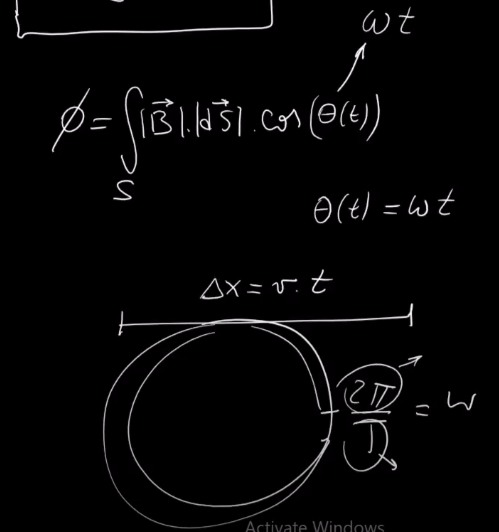 ωt
ϕ = ∫_S |B⃗|.|dS⃗|.cos(θ(t))
θ(t) = ωt
Δx = v. t
2π/T = ω
Activate Windows